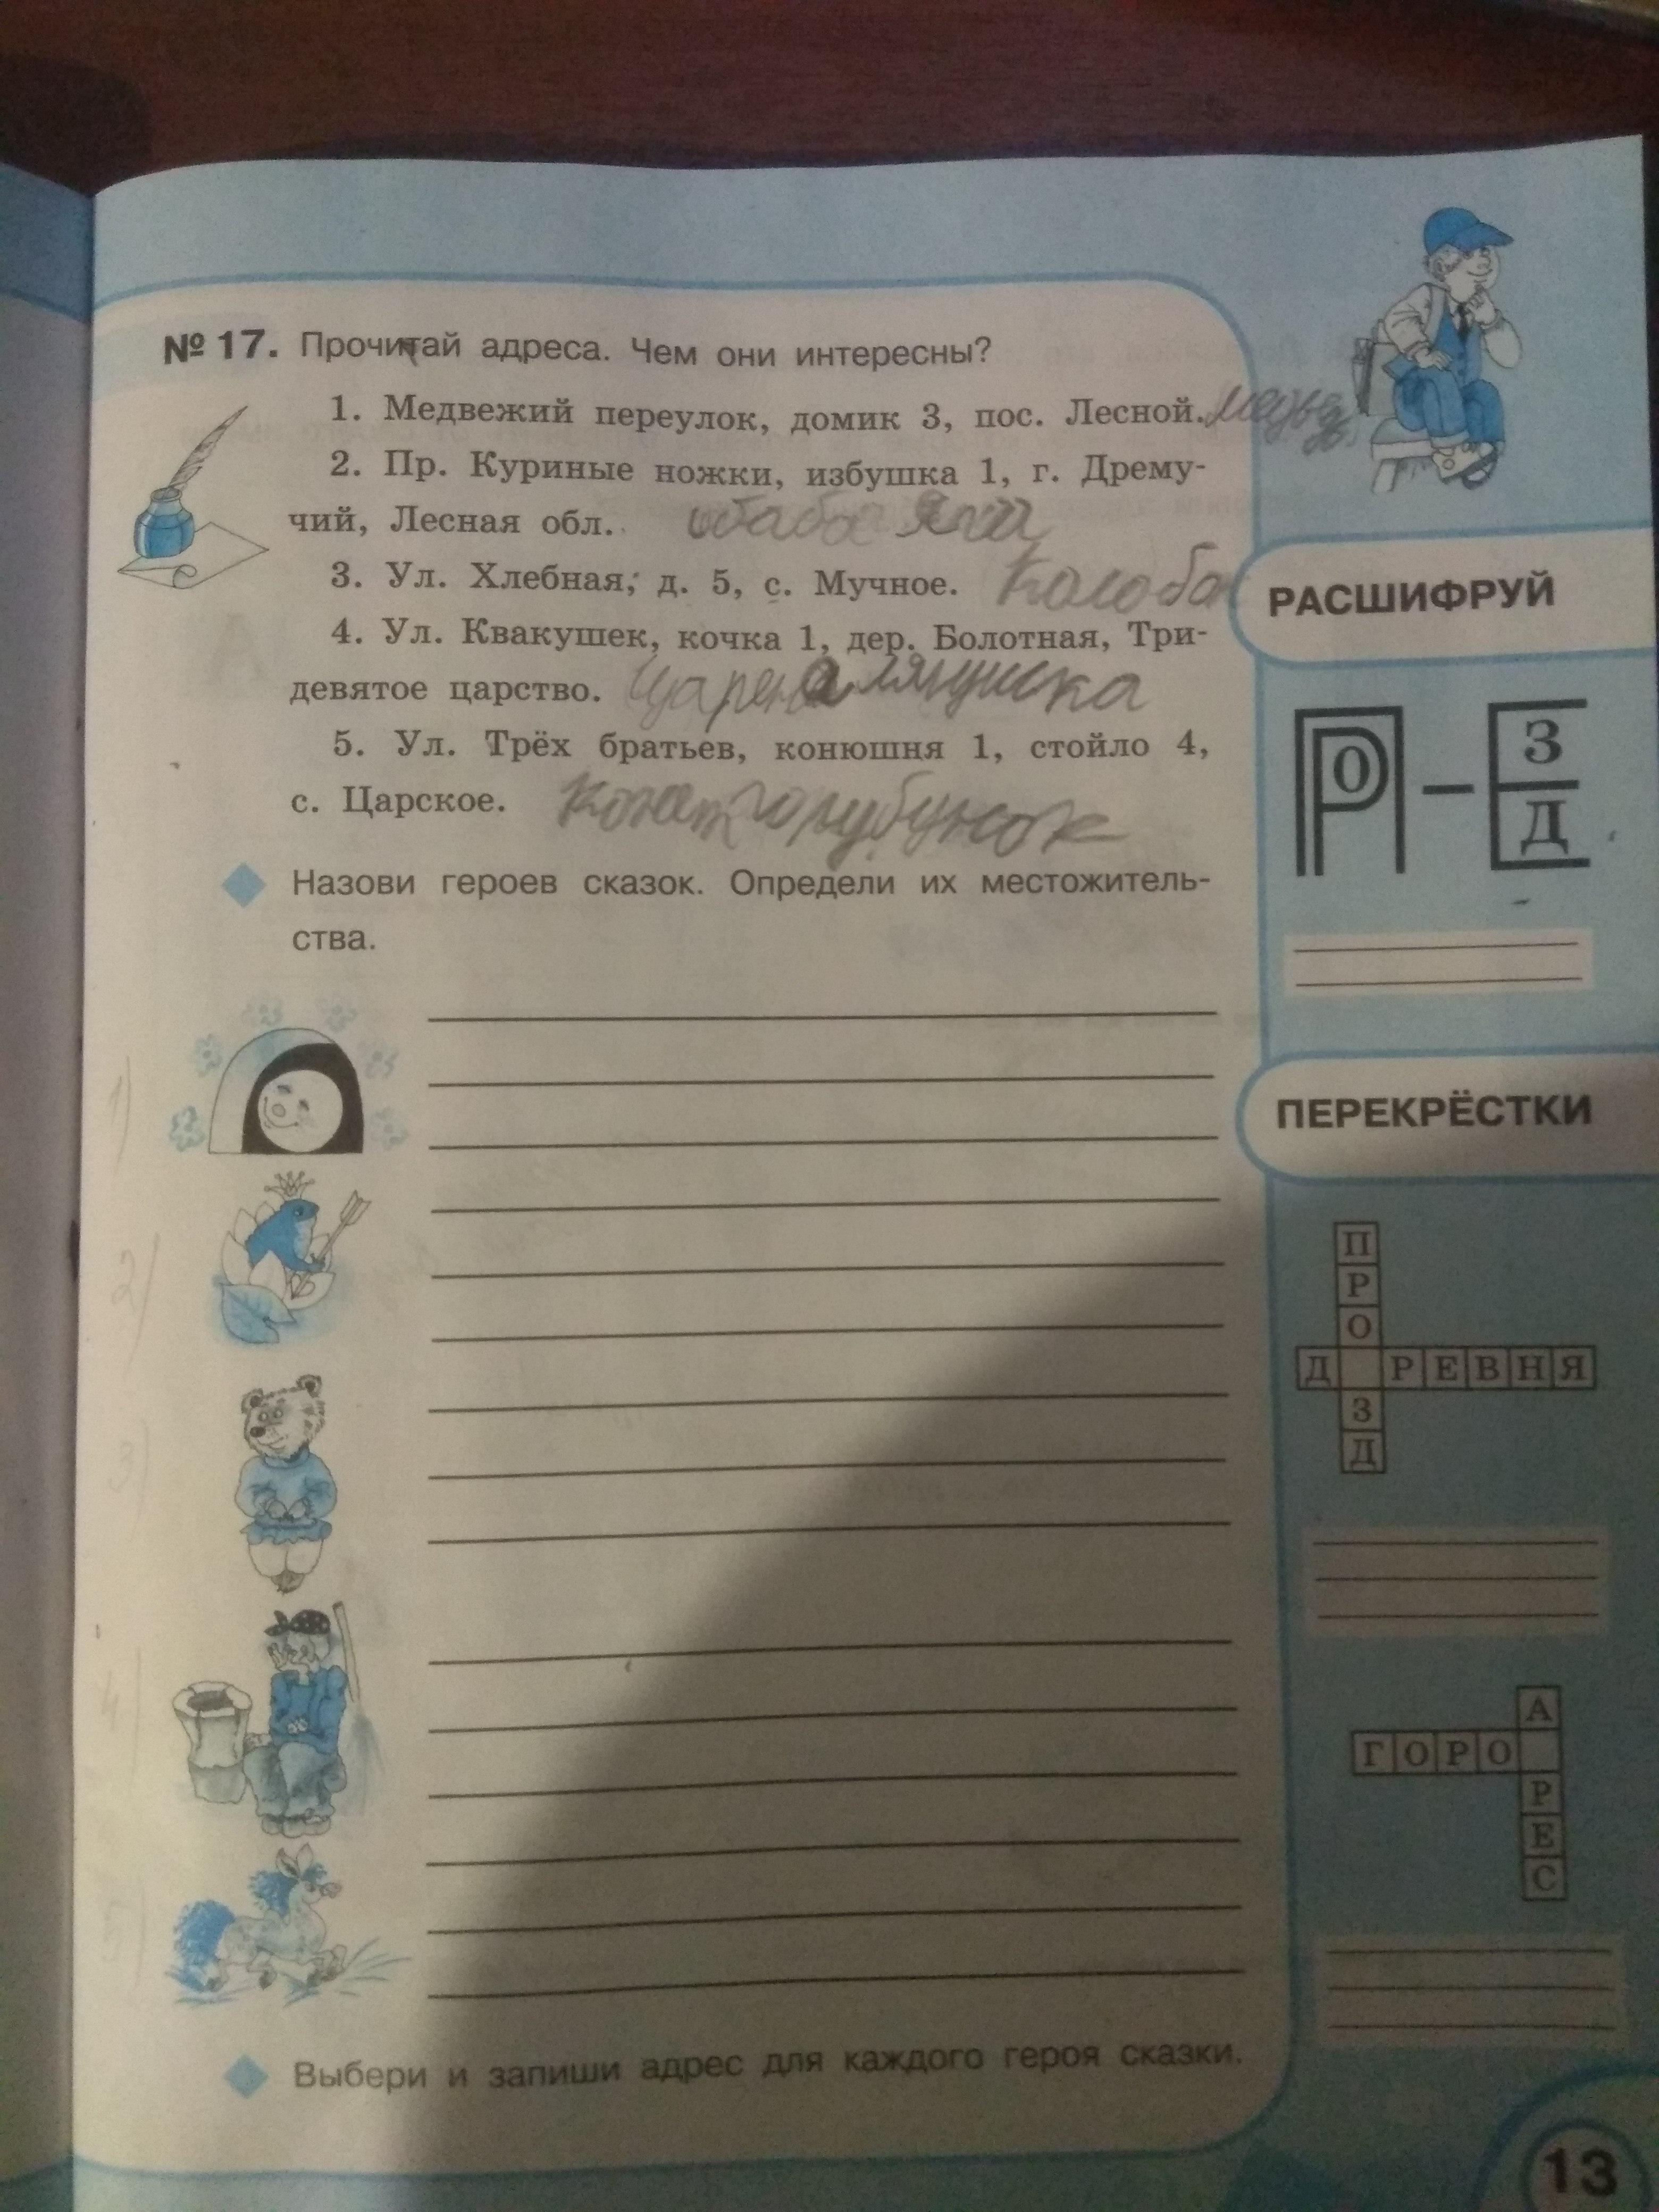 № 17. Прочитай адреса. Чем они интересны?
1. Медвежий переулок, домик 3, пос. Лесной. медведь
2. Пр. Куриные ножки, избушка 1, г. Дрему-
чий, Лесная обл. баба Яга
3. Ул. Хлебная, д. 5, с. Мучное. Колобо
4. Ул. Квакушек, кочка 1, дер. Болотная, Три-
девятое царство.
5. Ул. Трёх братьев, конюшня 1, стойло 4,
с. Царское.
Назови героев сказок. Определи их местожитель-
ства.
1)
2)
3)
4)
5)
Выбери и запиши адрес для каждого героя сказки.
РАСШИФРУЙ
Р О – З
Д
ПЕРЕКРЁСТКИ
П
Р
О
Д РЕВНЯ
З
Д
А
ГОРО
Р
Е
С
13